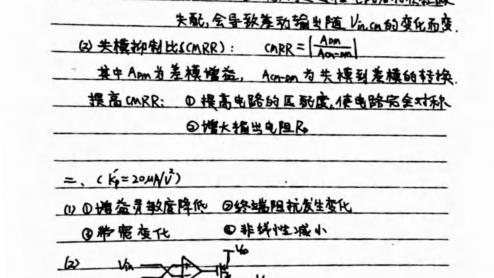 失配,会导致差动输出随 Vin,cm的变化而变.
(2) 共模抑制比(CMRR): CMRR=|ADM/ACM-DM|
其中ADM为差模增益, ACM-DM为共模到差模的转换.
提高CMRR: ①提高电路的匹配度,使电路完全对称
②增大输出电阻R
二、(Kp'=20μA/V²)
(1) ①增益灵敏度降低 ②终端阻抗发生变化
③带宽变化 ④非线性减小
(2) Vin